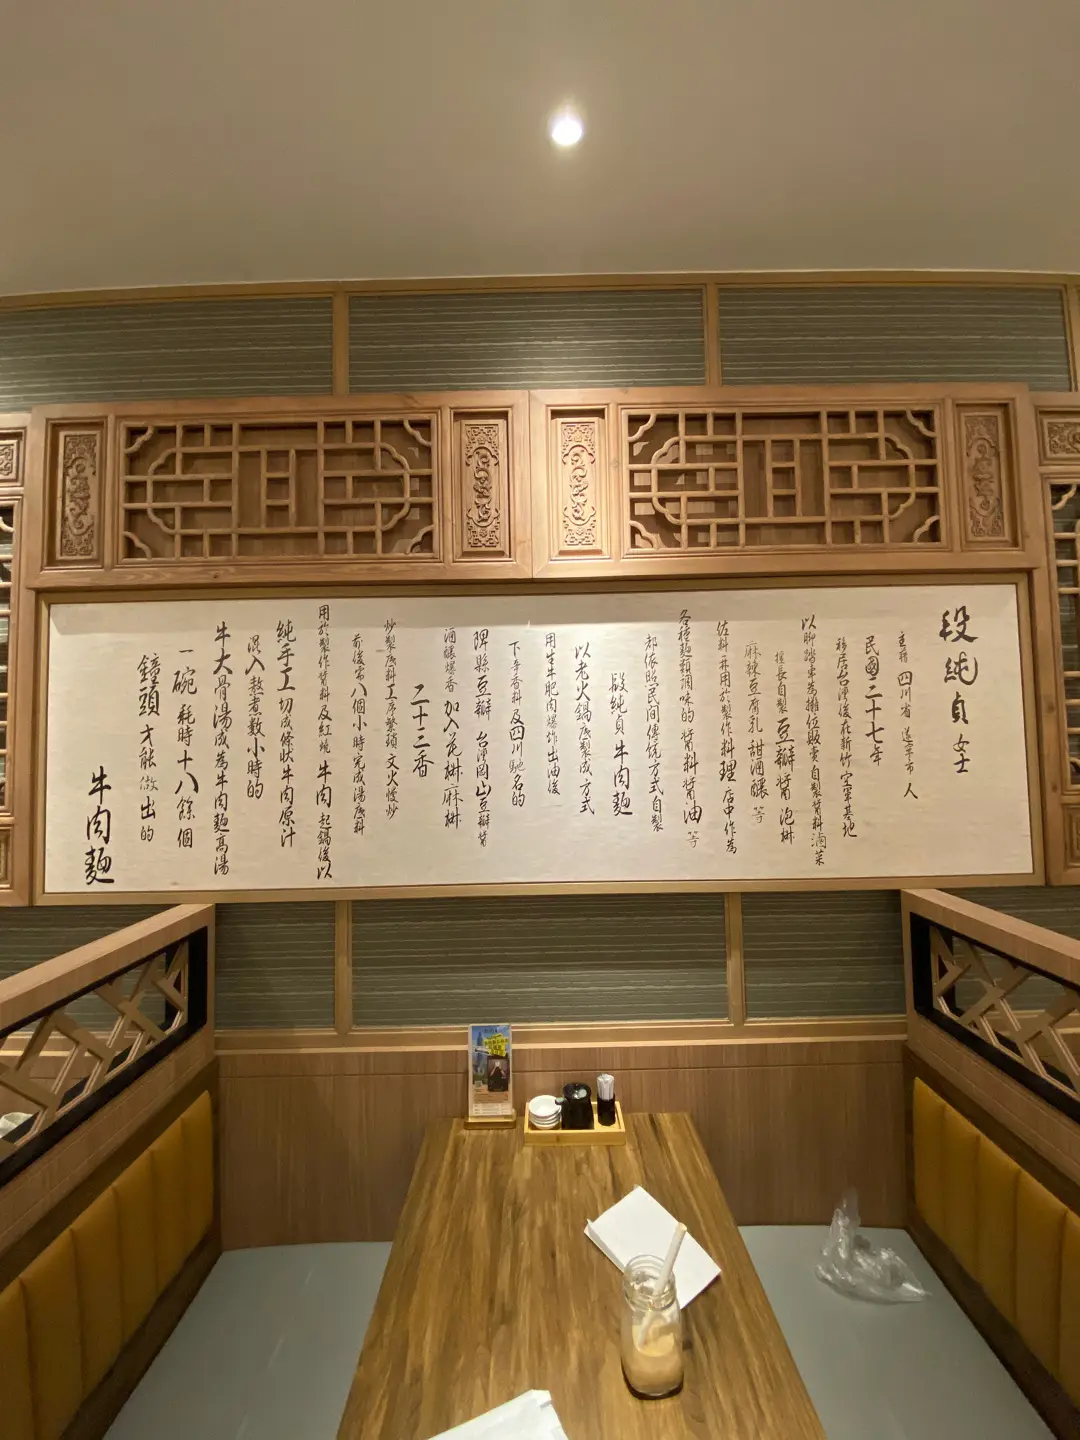 段純貞 女士
主籍 四川省 遂寧市人
民國二十七年
移居台灣後在新竹空軍基地
以腳踏車為攤位販賣自製醬料滷菜
擅長自製豆瓣醬 泡椒
麻辣豆腐乳 甜酒釀 等
佐料 并用於製作料理 店中作為
各種麵類調味的醬料醬油 等
都依照民間傳統方式自製
段純貞牛肉麵
以老火鍋底製成方式
用生牛肥肉爆炸出油後
下辛香料及四川馳名的
郫縣豆瓣 台灣岡山豆瓣醬
酒釀爆香 加入花椒麻椒
二十三香
炒製底料工序繁瑣文火慢炒
前後需八個小時完成湯底料
用於製作醬料及紅燒 牛肉 起鍋後以
純手工切成條狀牛肉原汁
混入熬煮數小時的
牛大骨湯成為牛肉麵高湯
一碗 耗時十八餘個
鐘頭才能做出的
牛肉麵